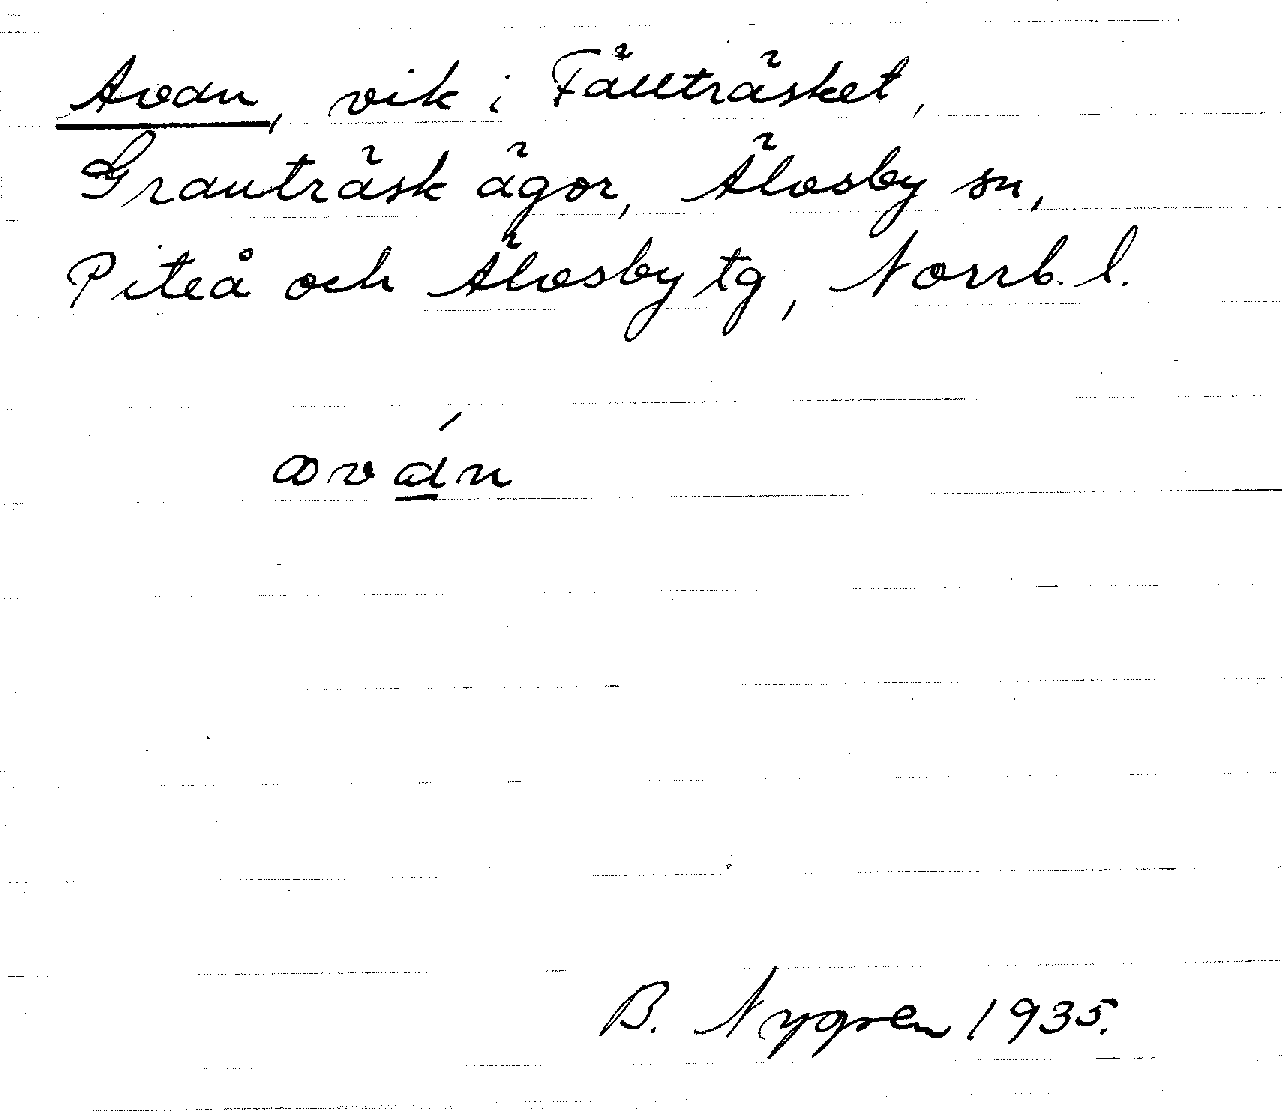 Avan, vik i Fällträsket,
Granträsk ägor, Älvsby sn,
Piteå och Älvsby tg, Norrb. l.
ꝏván
B. Nygren 1935.